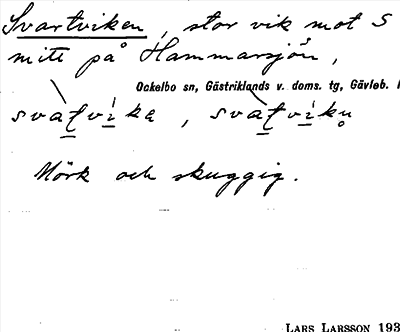 Svartviken, stor vik mot S
mitt på Hammarsjön,
Ockelbo sn, Gästriklands v. doms. tg, Gävleb. l
Mörk och skuggig.
LARS LARSSON 193